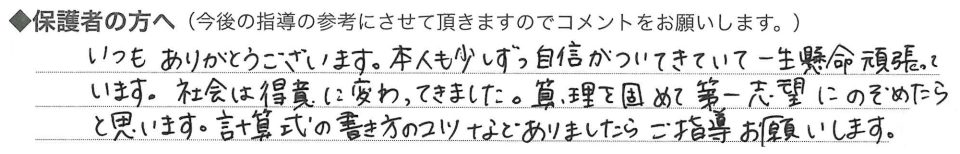 ◆保護者の方へ（今後の指導の参考にさせて頂きますのでコメントをお願いします。）
いつも ありがとうございます。本人も少しずつ自信がついてきていて一生懸命頑張って
います。社会は得意に変わってきました。算、理を固めて第一志望にのぞめたら
と思います。計算式の書き方のコツなどありましたらご指導お願いします。